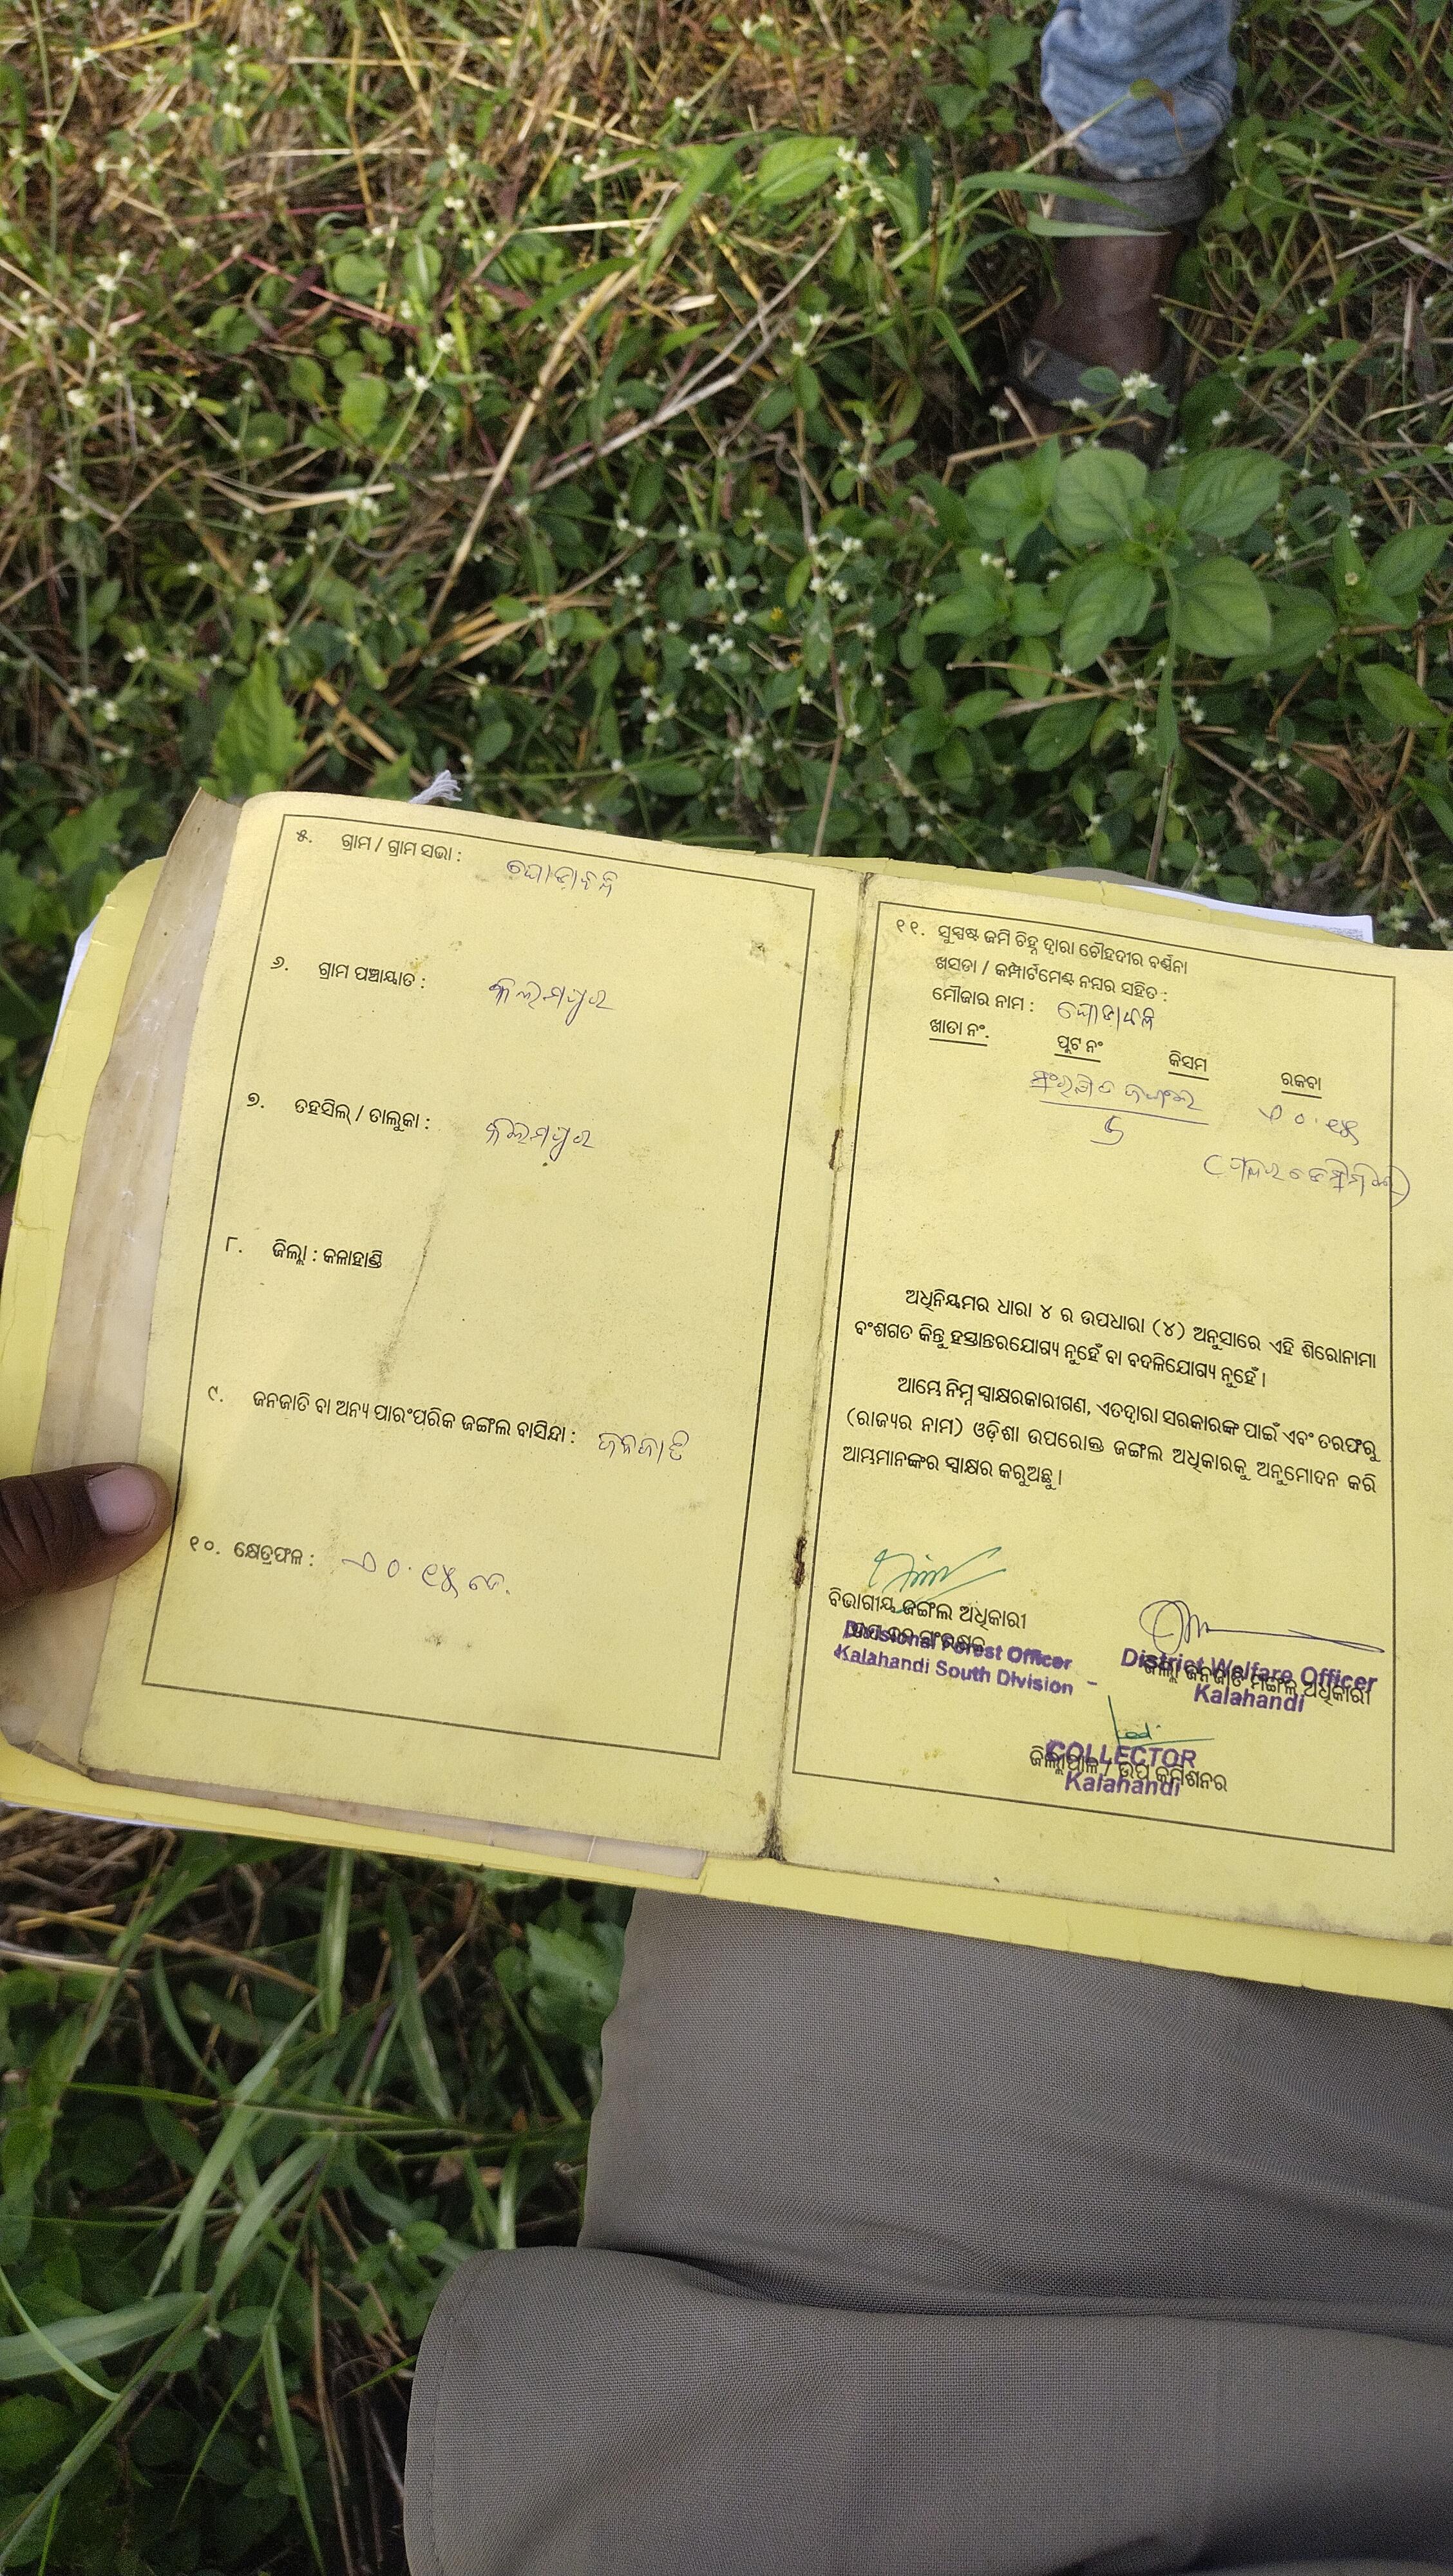 ୫. ଗ୍ରାମ / ଗ୍ରାମ ସଭା : ଘୋଡାବଳି
୬. ଗ୍ରାମ ପଞ୍ଚାୟାତ :
୭. ତହସିଲ୍ / ତାଲୁକା :
୮. ଜିଲ୍ଲା : କଳାହାଣ୍ଡି
୯. ଜନଜାତି ବା ଅନ୍ୟ ପାରଂପରିକ ଜଙ୍ଗଲ ବାସିନ୍ଦା : ଜନଜାତି
୧୦. କ୍ଷେତ୍ରଫଳ :
୧୧. ସୁସ୍ପଷ୍ଟ ଜମି ଚିହ୍ନ ଦ୍ଵାରା ଚୌହଦୀର ବର୍ଣ୍ଣନା
ଖସଡା / କମ୍ପାର୍ଟମେଣ୍ଟ ନମ୍ବର ସହିତ :
ମୌଜାର ନାମ : ଘୋଡାବଳି
ଖାତା ନଂ. ପ୍ଲଟ ନଂ କିସମ ରକବା
ସଂରକ୍ଷିତ ଜଙ୍ଗଲ
ଅଧିନିୟମର ଧାରା ୪ ର ଉପଧାରା (୪) ଅନୁସାରେ ଏହି ଶିରୋନାମା
ବଂଶଗତ କିନ୍ତୁ ହସ୍ତାନ୍ତରଯୋଗ୍ୟ ନୁହେଁ ବା ବଦଳିଯୋଗ୍ୟ ନୁହେଁ ।
ଆମ୍ଭେ ନିମ୍ନ ସ୍ଵାକ୍ଷରକାରୀଗଣ, ଏତଦ୍ଵାରା ସରକାରଙ୍କ ପାଇଁ ଏବଂ ତରଫରୁ
(ରାଜ୍ୟର ନାମ) ଓଡ଼ିଶା ଉପରୋକ୍ତ ଜଙ୍ଗଲ ଅଧିକାରକୁ ଅନୁମୋଦନ କରି
ଆମ୍ଭମାନଙ୍କର ସ୍ଵାକ୍ଷର କରୁଅଛୁ ।
ବିଭାଗୀୟ ଜଙ୍ଗଲ ଅଧିକାରୀ
Divisional Forest Officer
Kalahandi South Division
District Welfare Officer
ଜିଲ୍ଲା ଜନଜାତି ମଙ୍ଗଳ ଅଧିକାରୀ
Kalahandi
COLLECTOR
ଜିଲ୍ଲାପାଳ / ଉପ କମିଶନର
Kalahandi